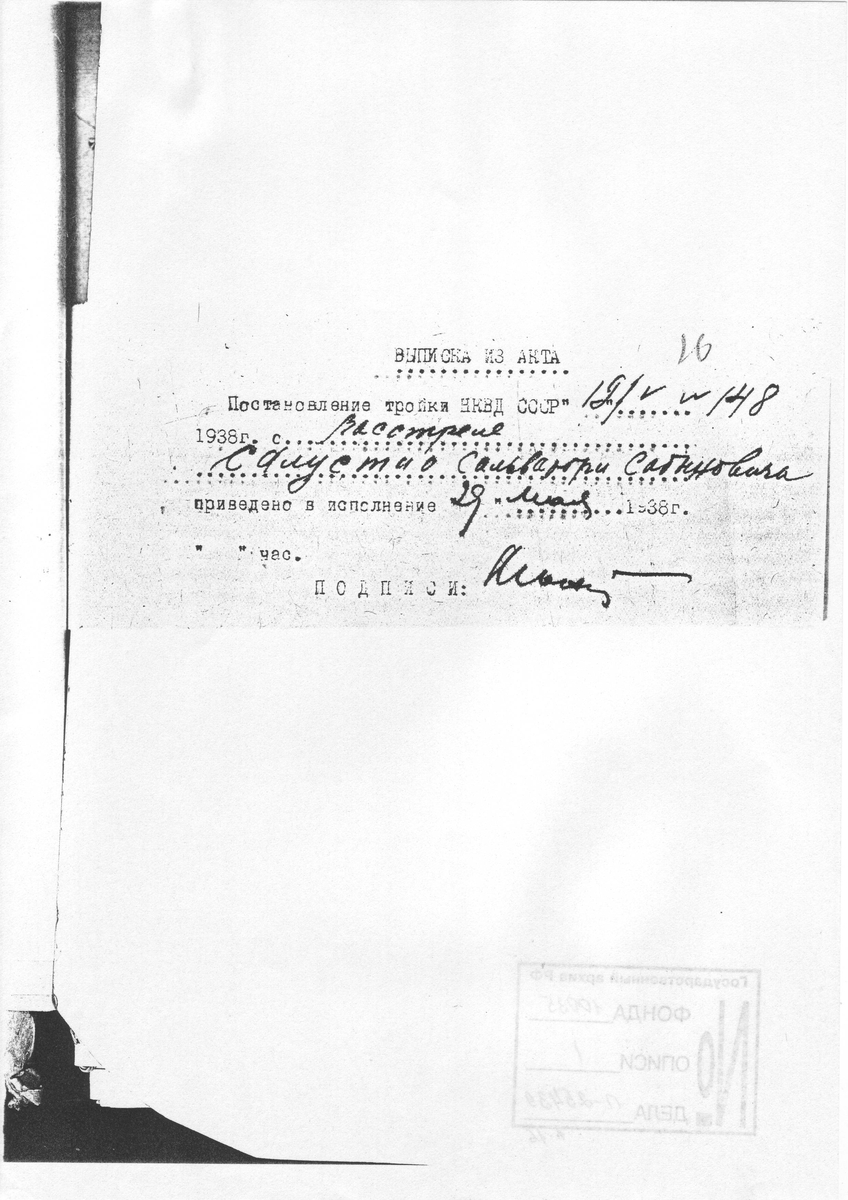 16
ВЫПИСКА ИЗ АКТА
Постановление тройки НКВД СССР" 19/V № 148
1938г. о расстреле
Салустио Сальватори Сабиновича
приведено в исполнение 29 "мая 1938г.
" " час.
ПОДПИСИ:
Государственный архив РФ
№
ФОНДА 10035
ОПИСИ 1
ДЕЛА